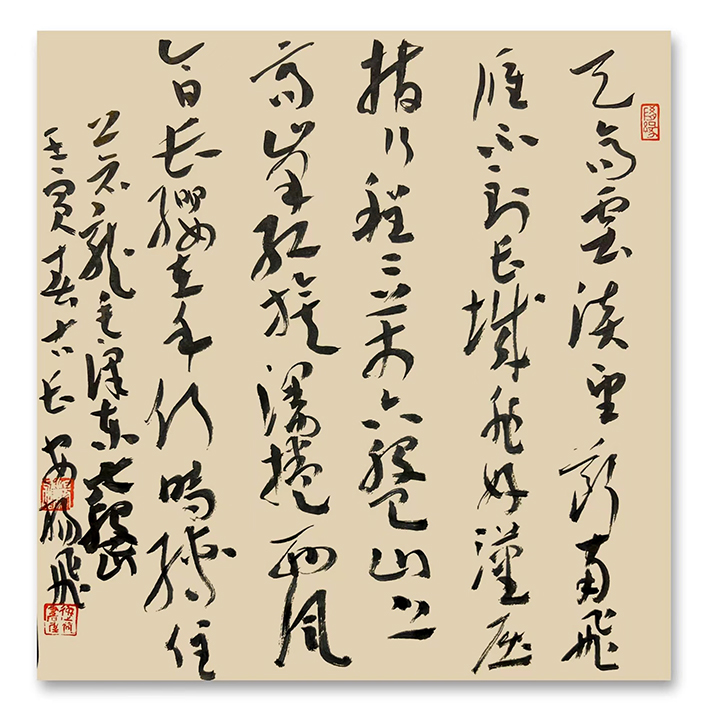 天高雲淡望斷南飛
雁不到長城非好漢屈
指行程二万六盤山上
高峯紅旗漫捲西風
今日長纓在手何時縛住
蒼龍毛澤東六盤山
壬寅春古長安楊飛